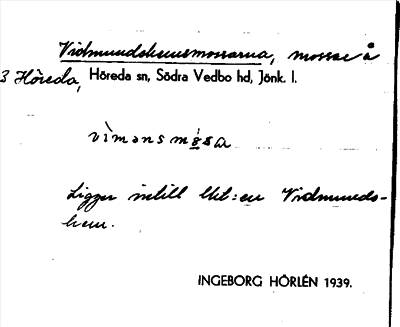 Vidmundshemsmossarna, mosse å
3 Höreda, Höreda sn, Södra Vedbo hd, Jönk. l.
vìmənsmåsa
Ligger intill lht:en Vidmunds-
hem.
INGEBORG HÖRLÉN 1939.